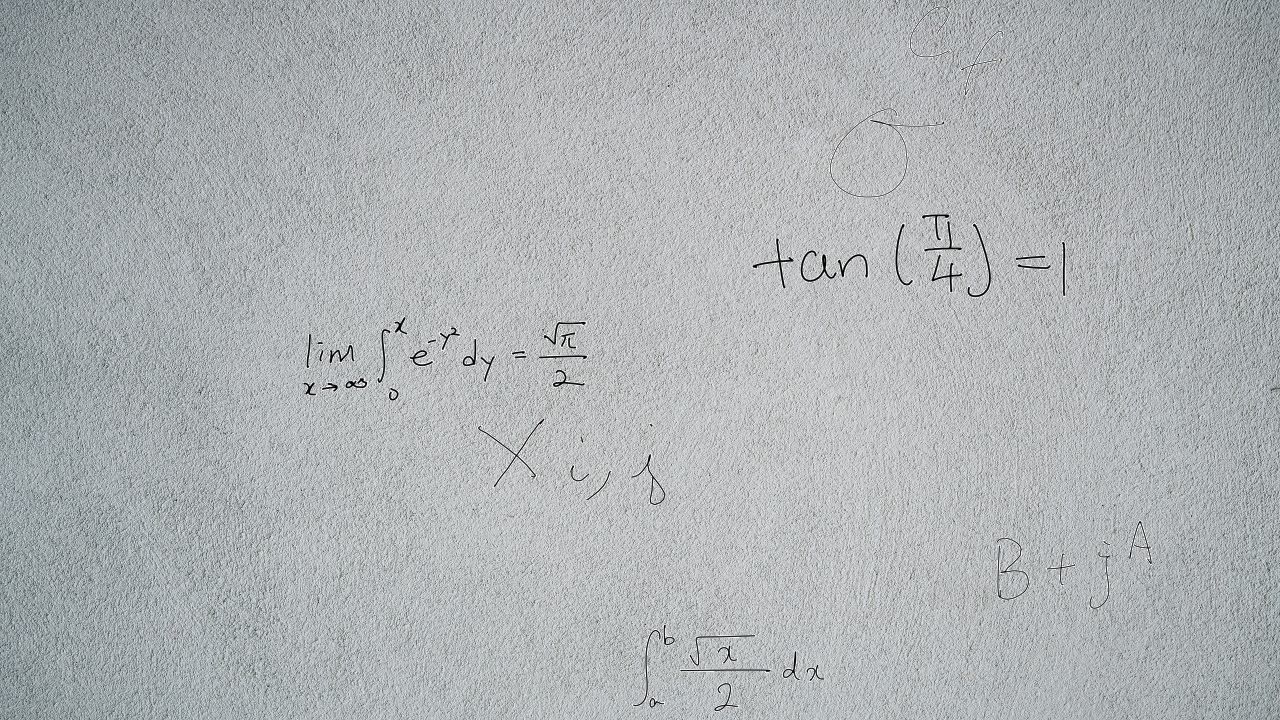 e_f
σ
tan(π/4) = 1
lim_{x→∞} ∫_0^x e^{-y^2} dy = √π/2
X_{i,j}
B + j^A
∫_a^b √x/2 dx